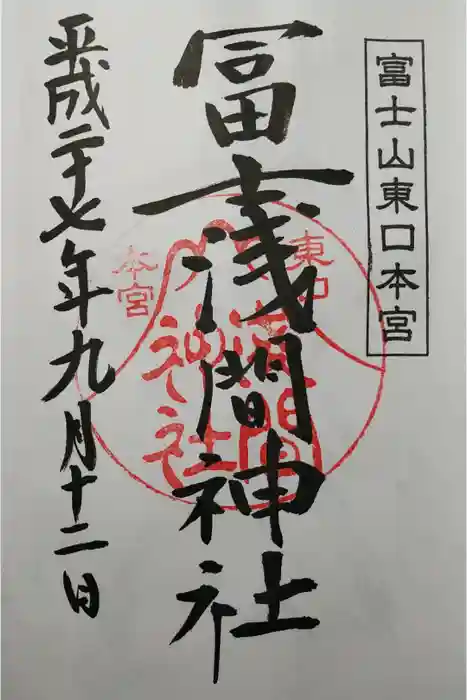 富士山東口本宮
冨士浅間神社
平成二十七年九月十二日
東口
本宮
浅間
神社